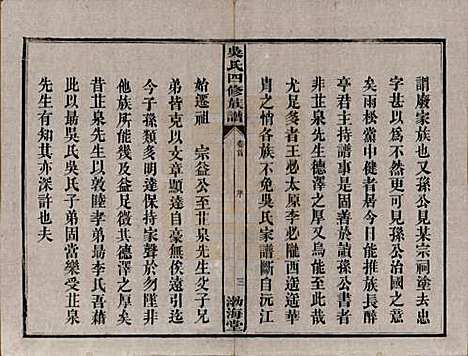 謂廢家族也又孫公見某宗祠塗去忠
孝廿以爲不然而謂可見孫公治國之
矣雨松黨中健者居今日能推族長醉
亭君主持譜事是固善於讀孫公書者
亦非芷泉先生德澤之厚又烏能至此哉
尤足多者王必太原李必隴西遥遥華
胄之誚各族不免吳氏家譜斷自沅江
吳氏四修族譜
卷首
序
三
渤海堂
始遷祖 宗益公至芷泉先生父子兄
弟皆克以文章顯達自豪無俟遠引三
子孫類多明達保持家聲於勿墜並非
他族所可幾及益足徵其德澤之厚矣
昔芷泉先生以敦睦孝弟勗李氏吾藉
此以勗吳氏吳氏子弟固當樂受芷泉
先生有知其亦深許也夫